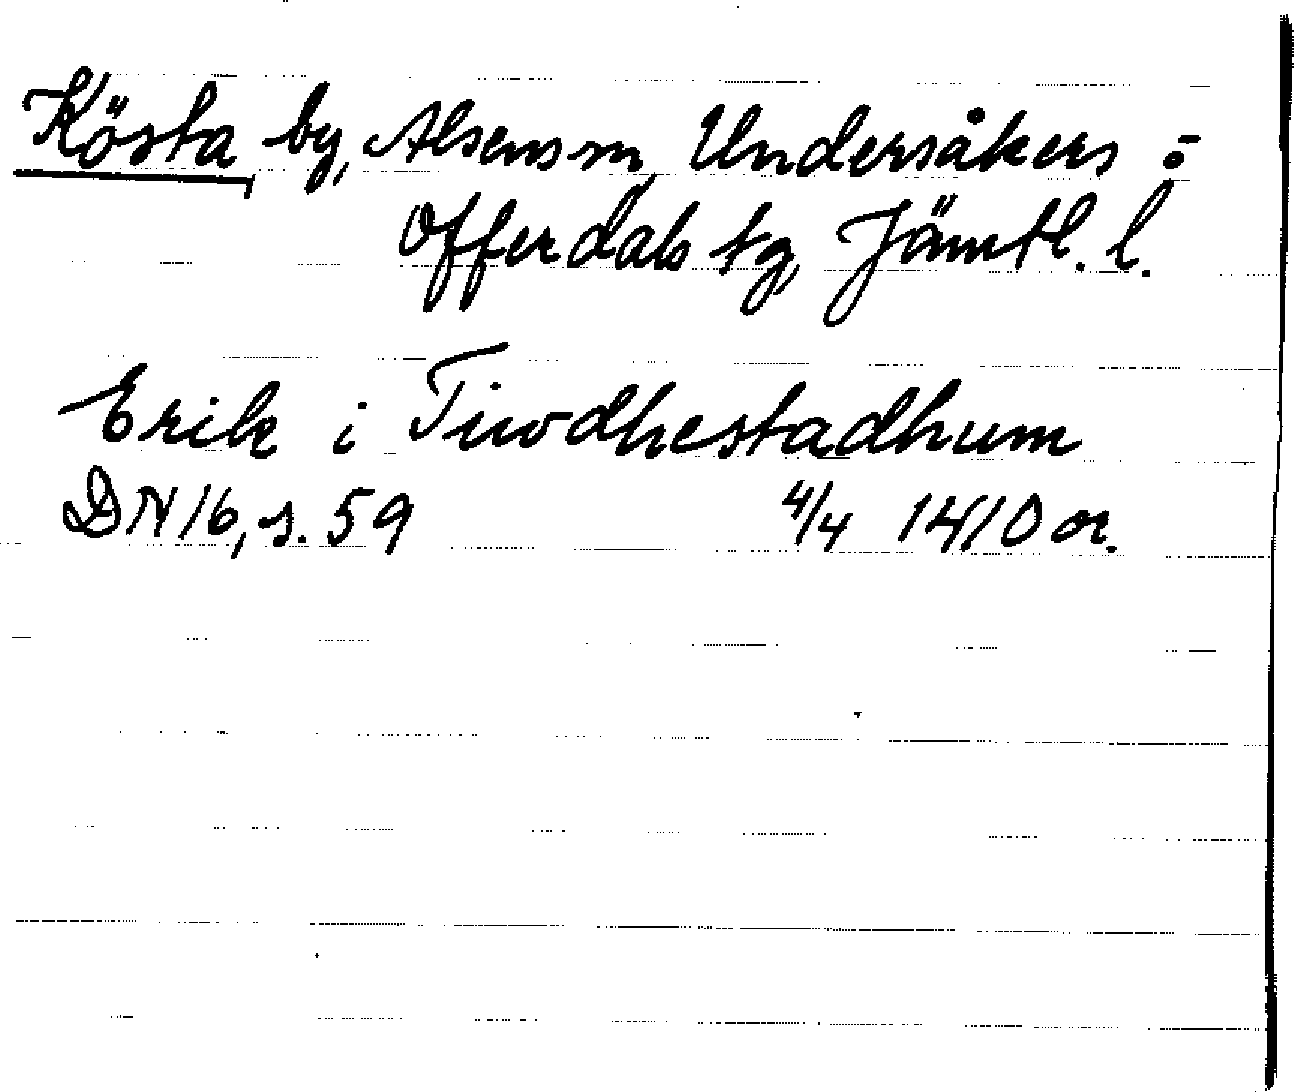 Kösta by, Alsens sn, Undersåkers o
Offerdals tg, Jämtl. l.
Erik i Tiwdhestadhum
DN 16, s. 59 4/4 1410 or.